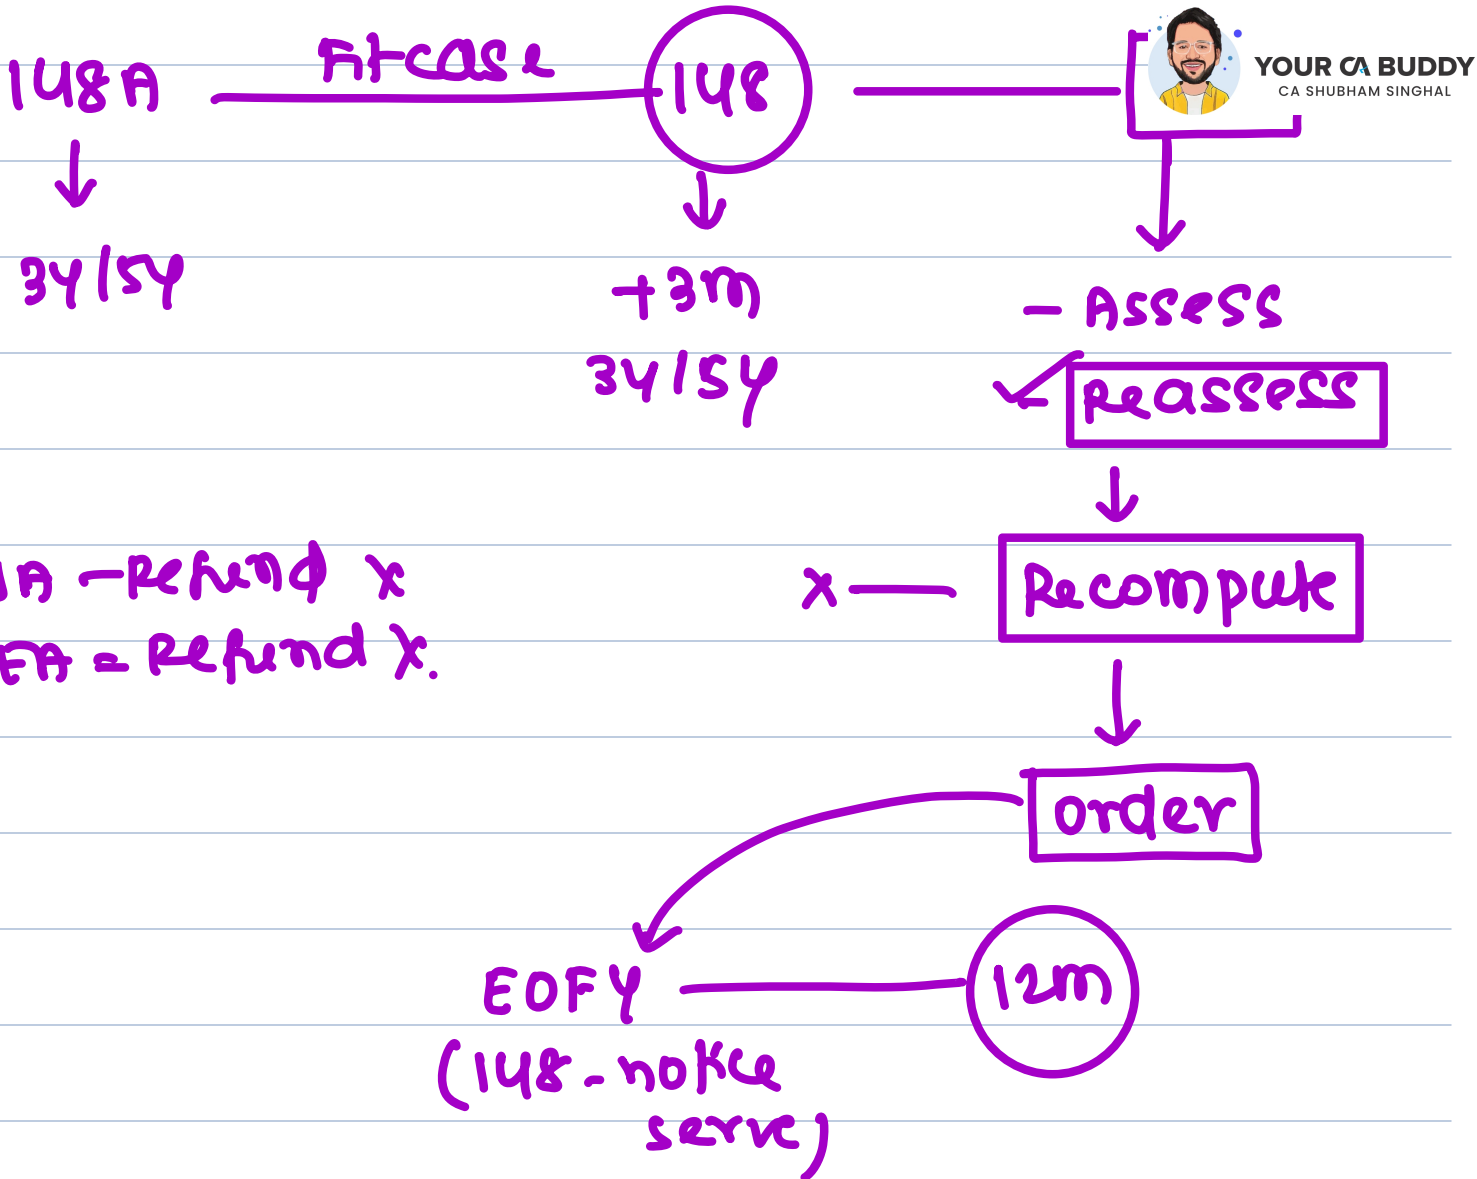 148A Fit case 148
YOUR CA BUDDY
CA SHUBHAM SINGHAL
3Y/5Y
+3m
3Y/5Y
- Assess
- Reassess
A - Refund X
X - Recompute
FA = Refund X.
order
EOFY 12m
(148 - notice
serve)